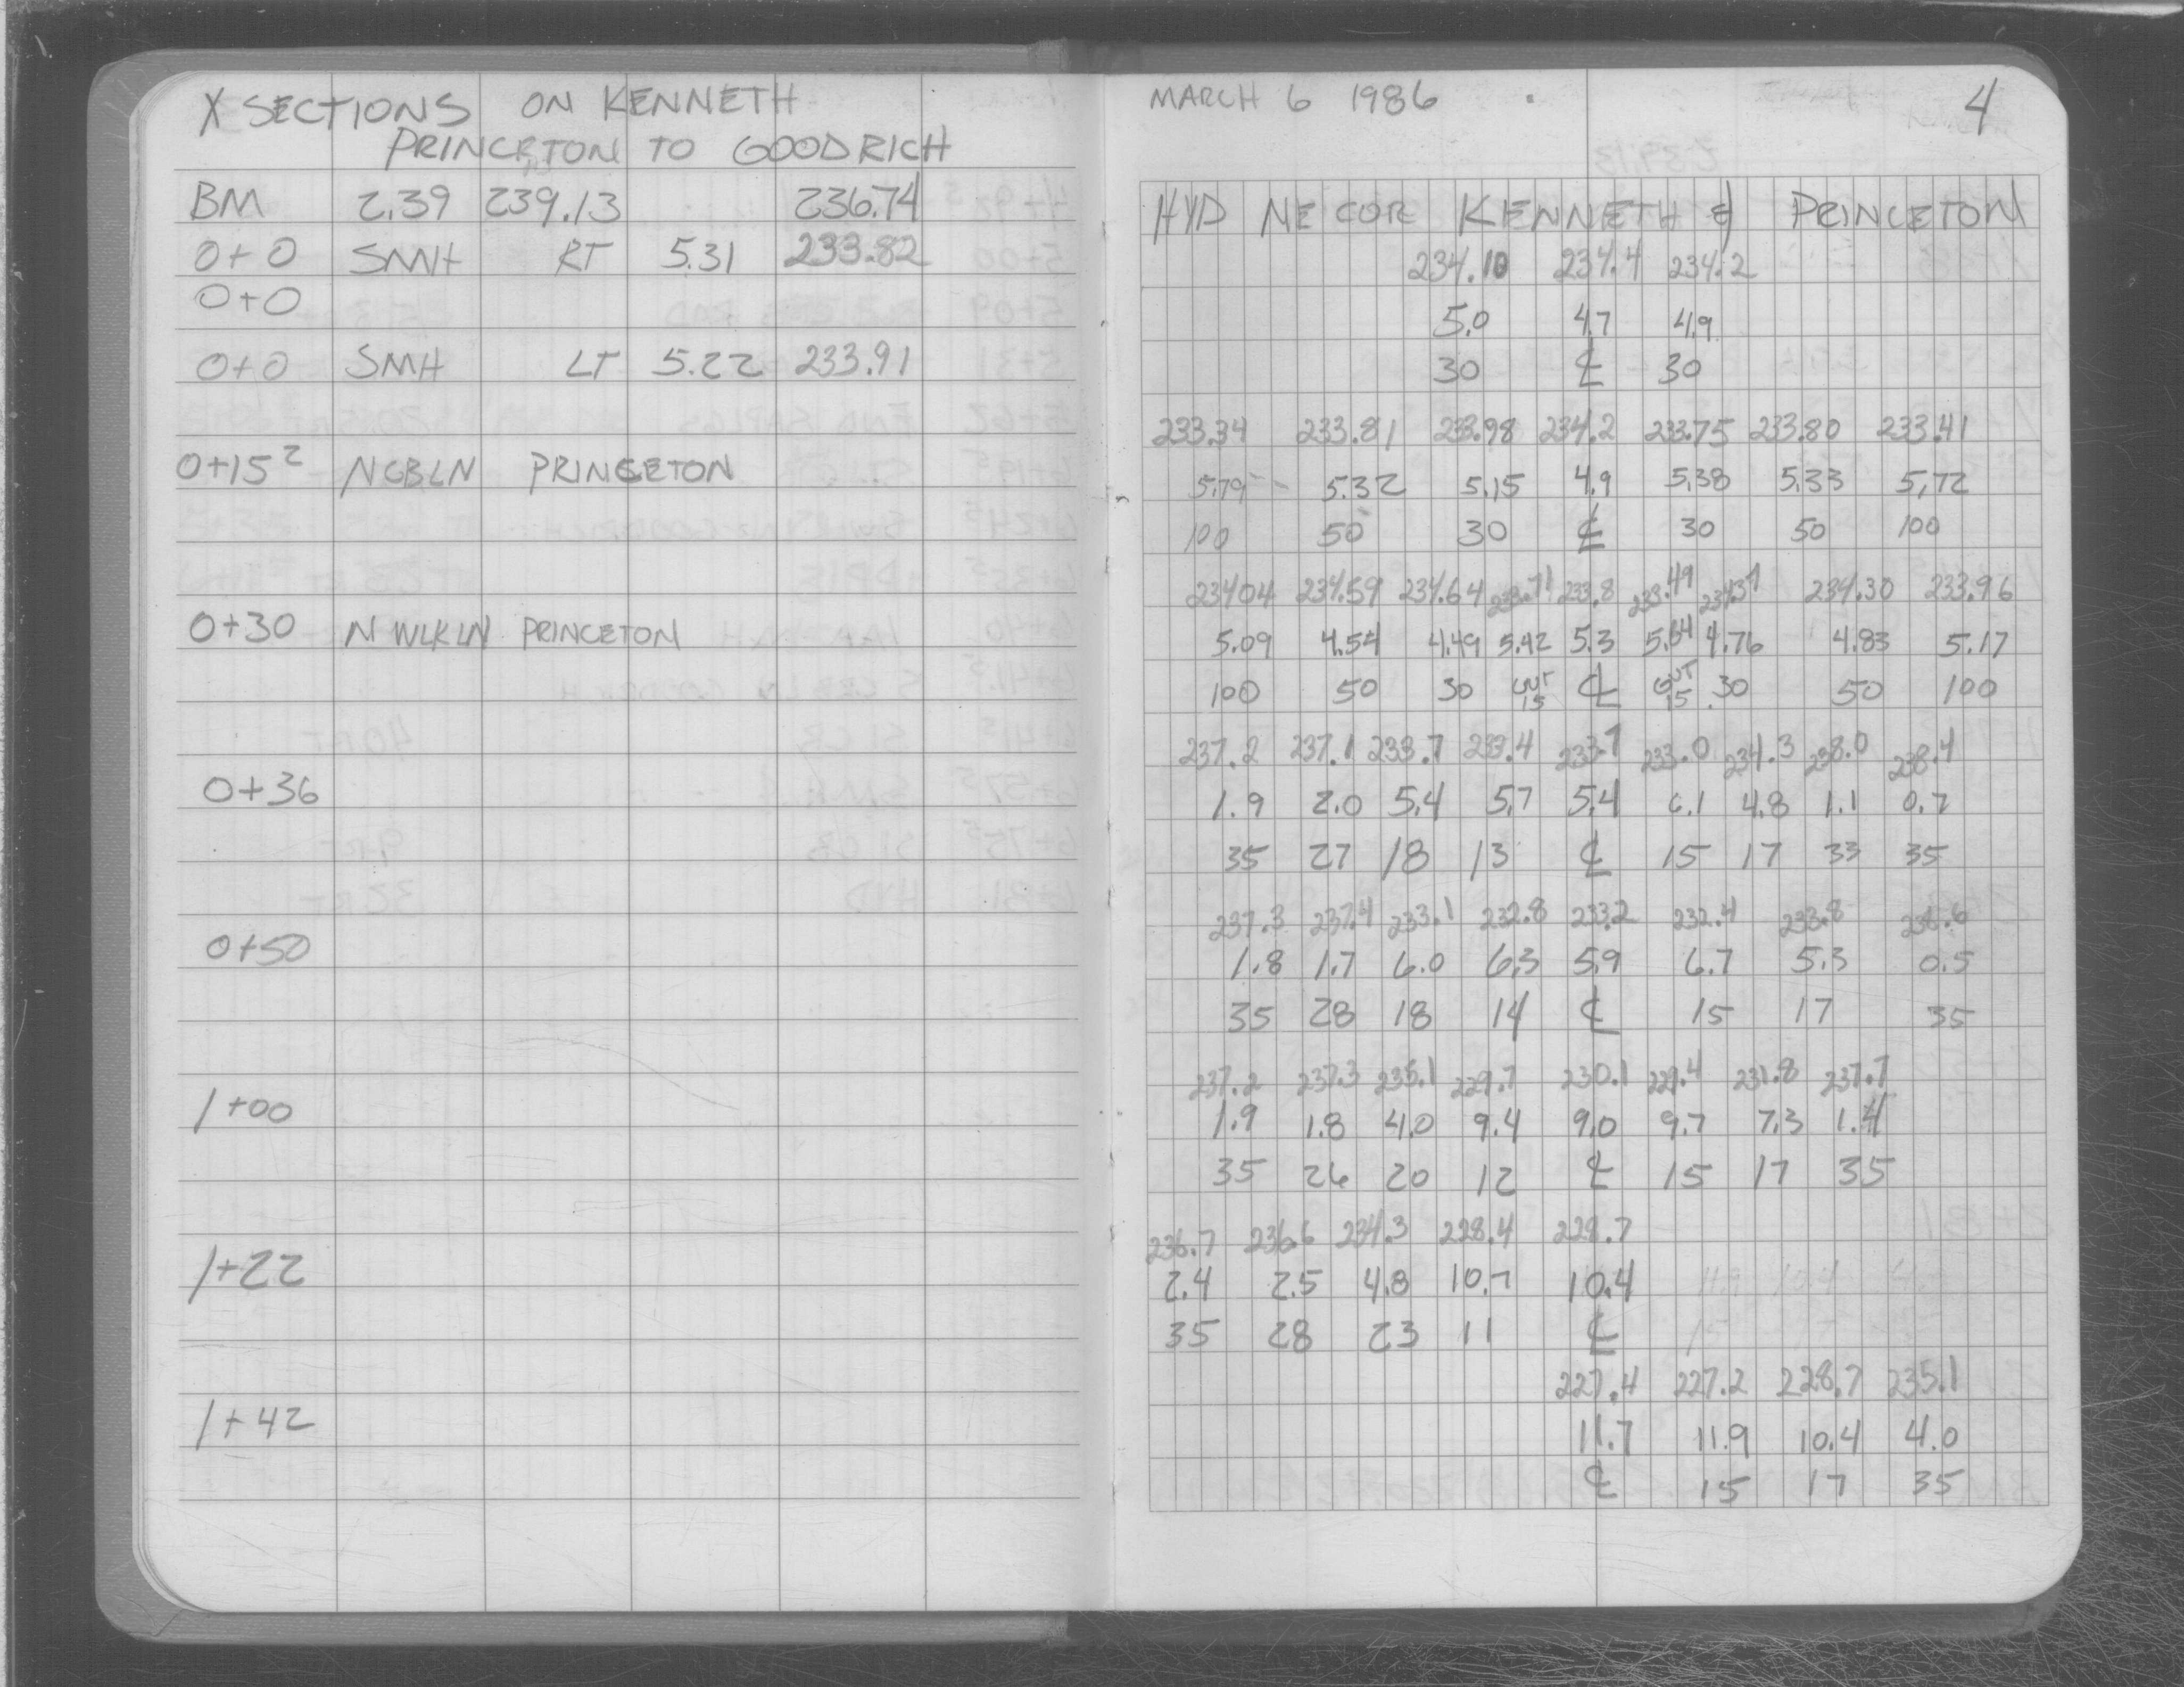 X SECTIONS ON KENNETH
PRINCETON TO GOODRICH
BM 2.39 239.13 236.74
0+0 SMH RT 5.31 233.82
0+0
0+0 SMH LT 5.22 233.91
0+15² NCBLN PRINCETON
0+30 N WLKLN PRINCETON
0+36
0+50
1+00
1+22
1+42
MARCH 6 1986 4
HYD NE COR KENNETH & PRINCETON
234.10 234.4 234.2
5.0 4.7 4.9
30 ℄ 30
233.34 233.81 233.98 234.2 233.75 233.80 233.41
5.79 5.32 5.15 4.9 5.38 5.33 5.72
100 50 30 ℄ 30 50 100
234.04 234.59 234.64 233.71 233.8 233.49 234.37 234.30 233.96
5.09 4.54 4.49 5.42 5.3 5.64 4.76 4.83 5.17
100 50 30 GUT 15 ℄ GUT 15 30 50 100
237.2 237.1 233.7 233.4 233.7 233.0 234.3 238.0 238.4
1.9 2.0 5.4 5.7 5.4 6.1 4.8 1.1 0.7
35 27 18 13 ℄ 15 17 33 35
237.3 237.4 233.1 232.8 233.2 232.4 233.8 238.6
1.8 1.7 6.0 6.3 5.9 6.7 5.3 0.5
35 28 18 14 ℄ 15 17 35
237.2 237.3 235.1 229.7 230.1 229.4 231.8 237.7
1.9 1.8 4.0 9.4 9.0 9.7 7.3 1.4
35 26 20 12 ℄ 15 17 35
236.7 236.6 234.3 228.4 228.7
2.4 2.5 4.8 10.7 10.4
35 28 23 11 ℄
227.4 227.2 228.7 235.1
11.7 11.9 10.4 4.0
℄ 15 17 35